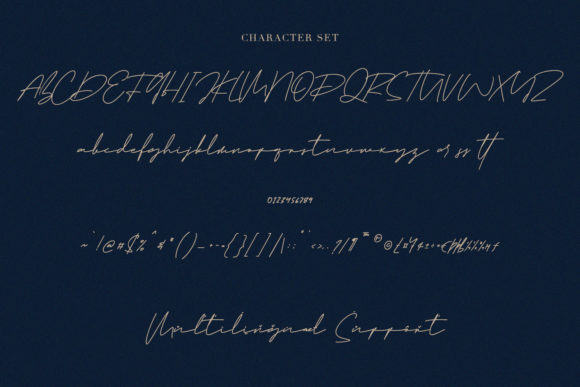 CHARACTER SET
ABCDEFGHIJKLMNOPQRSTUVWXYZ
abcdefghijklmnopqrstuvwxyz or ss tt
0123456789
Multilingual Support